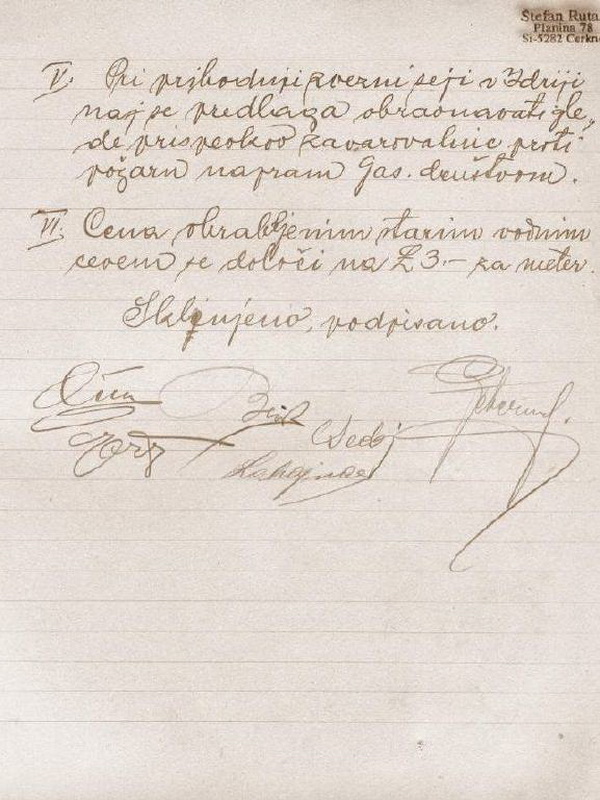 Štefan Ruta
Planina 78
SI-5282 Cerkno
V. Pri prihodnji zverni seji v Idriji
naj se predlaga obravnavati gle-
de prispevkov zavarovalnic proti
požaru napram Gas. društvom.
VI. Cena obrabljenim starim vodnim
cevem se določi na £ 3.- za meter.
Sklenjeno, podpisano.